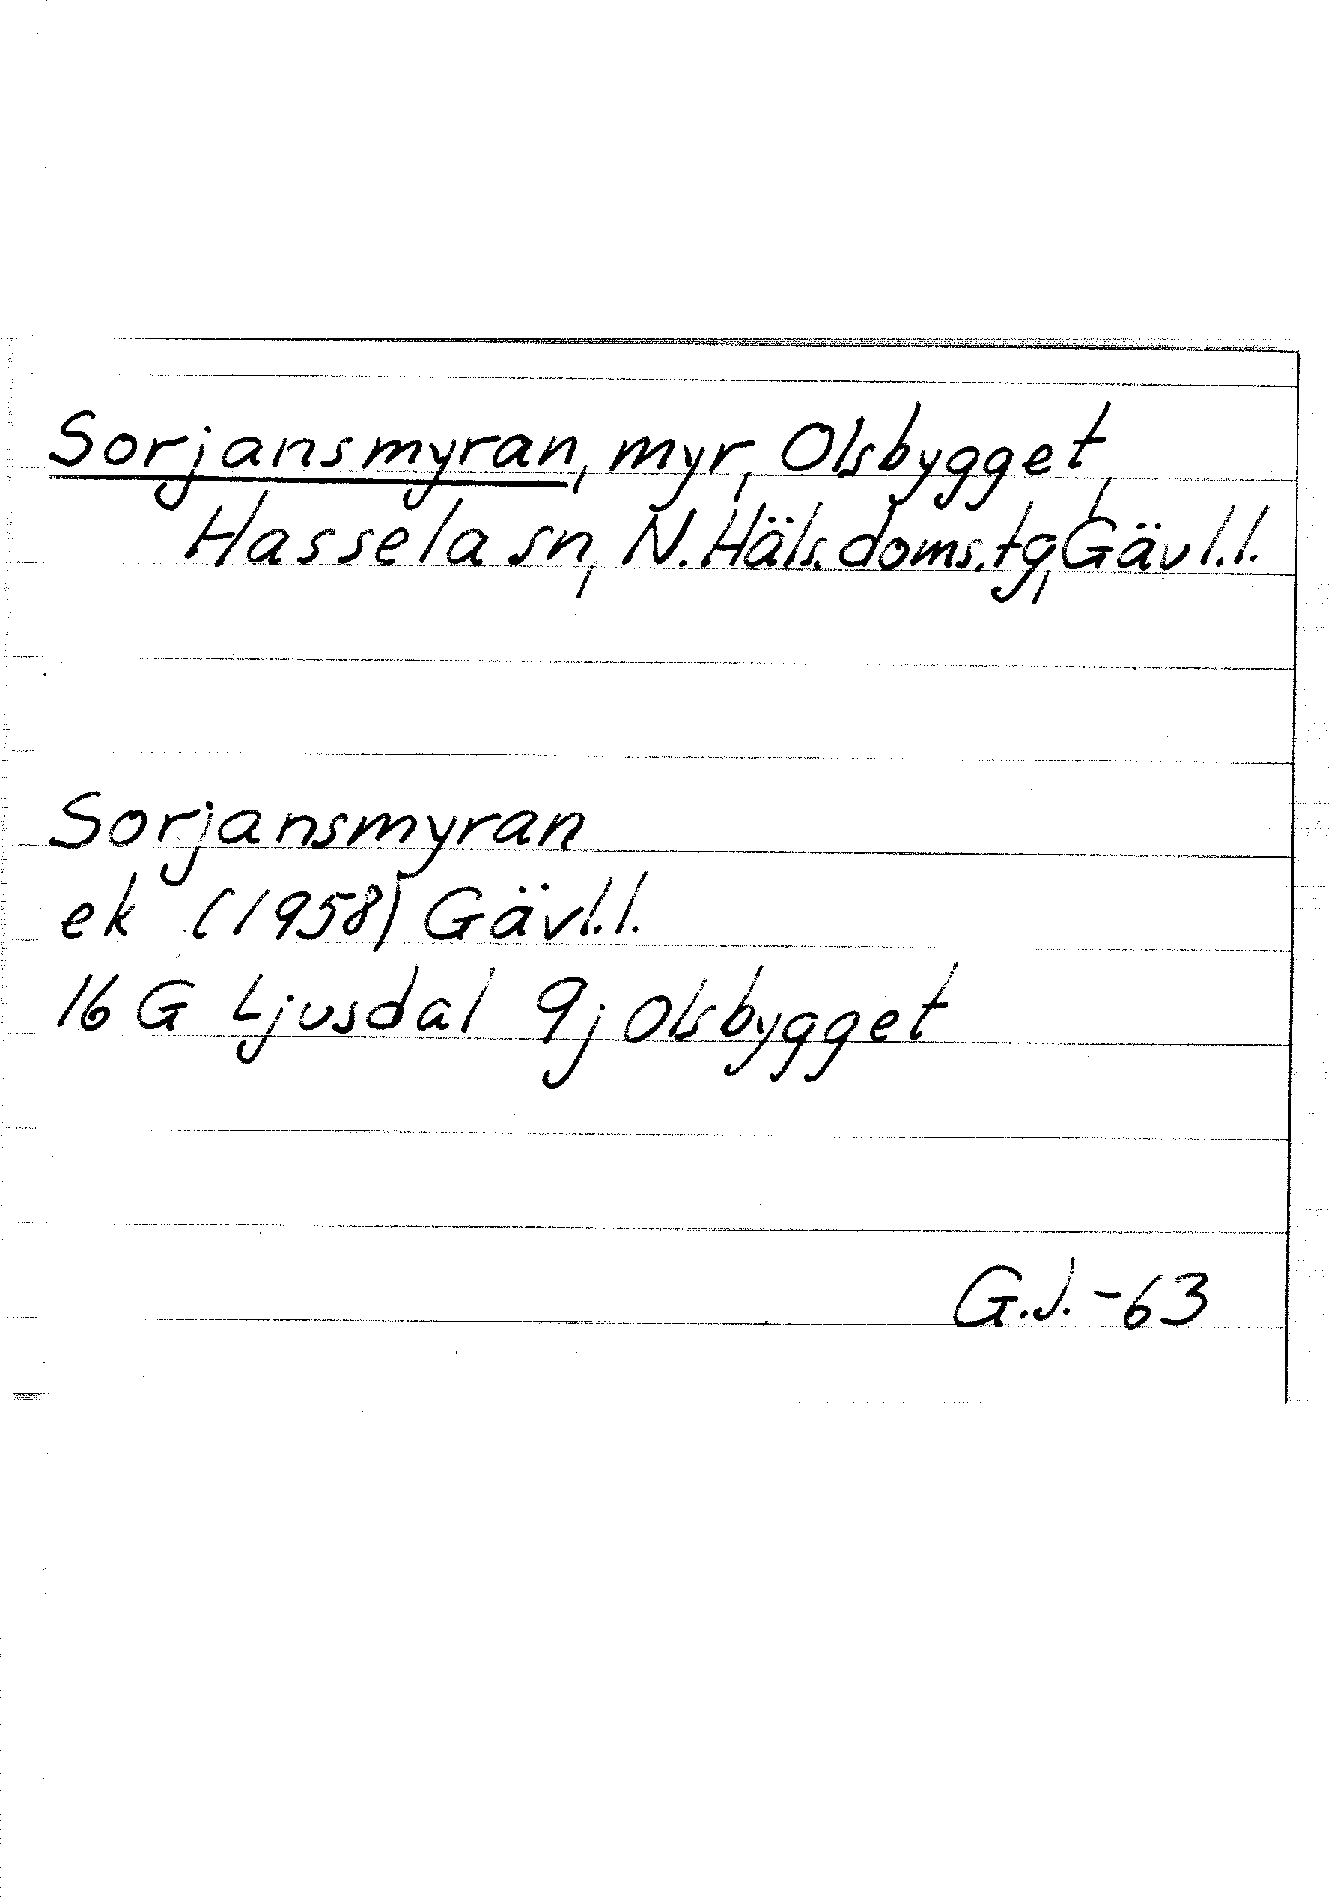 Sorjansmyran, myr, Olsbygget,
Hassela sn, N. Häls. doms.tg, Gävl.l.
Sorjansmyran
ek (1958) Gävl.l.
16 G Ljusdal 9j Olsbygget
G.J. -63